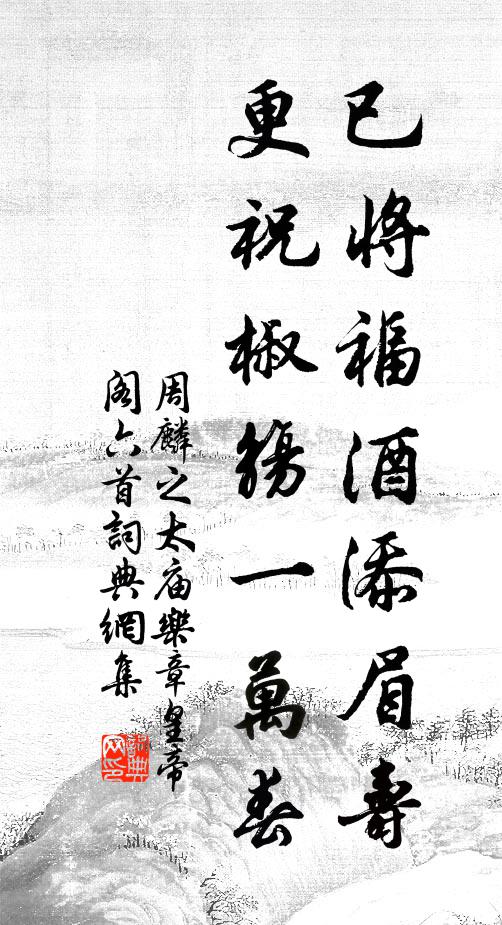 已將福酒添眉壽
更祝椒觴一萬春
周麟之太廟樂章皇帝
閣六首詞典網集
詞典
网印